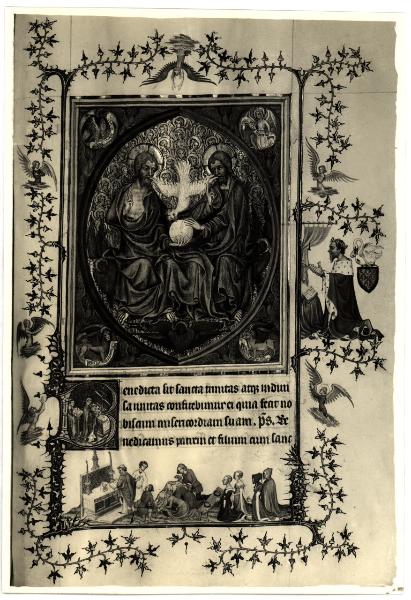 Benedicta sit sancta trinitas atqȝ indiui
sa unitas confitebimur ei quia fecit no
biscum misericordiam suam. p̄s. Be
nedicamus patrem et filium cum sanc